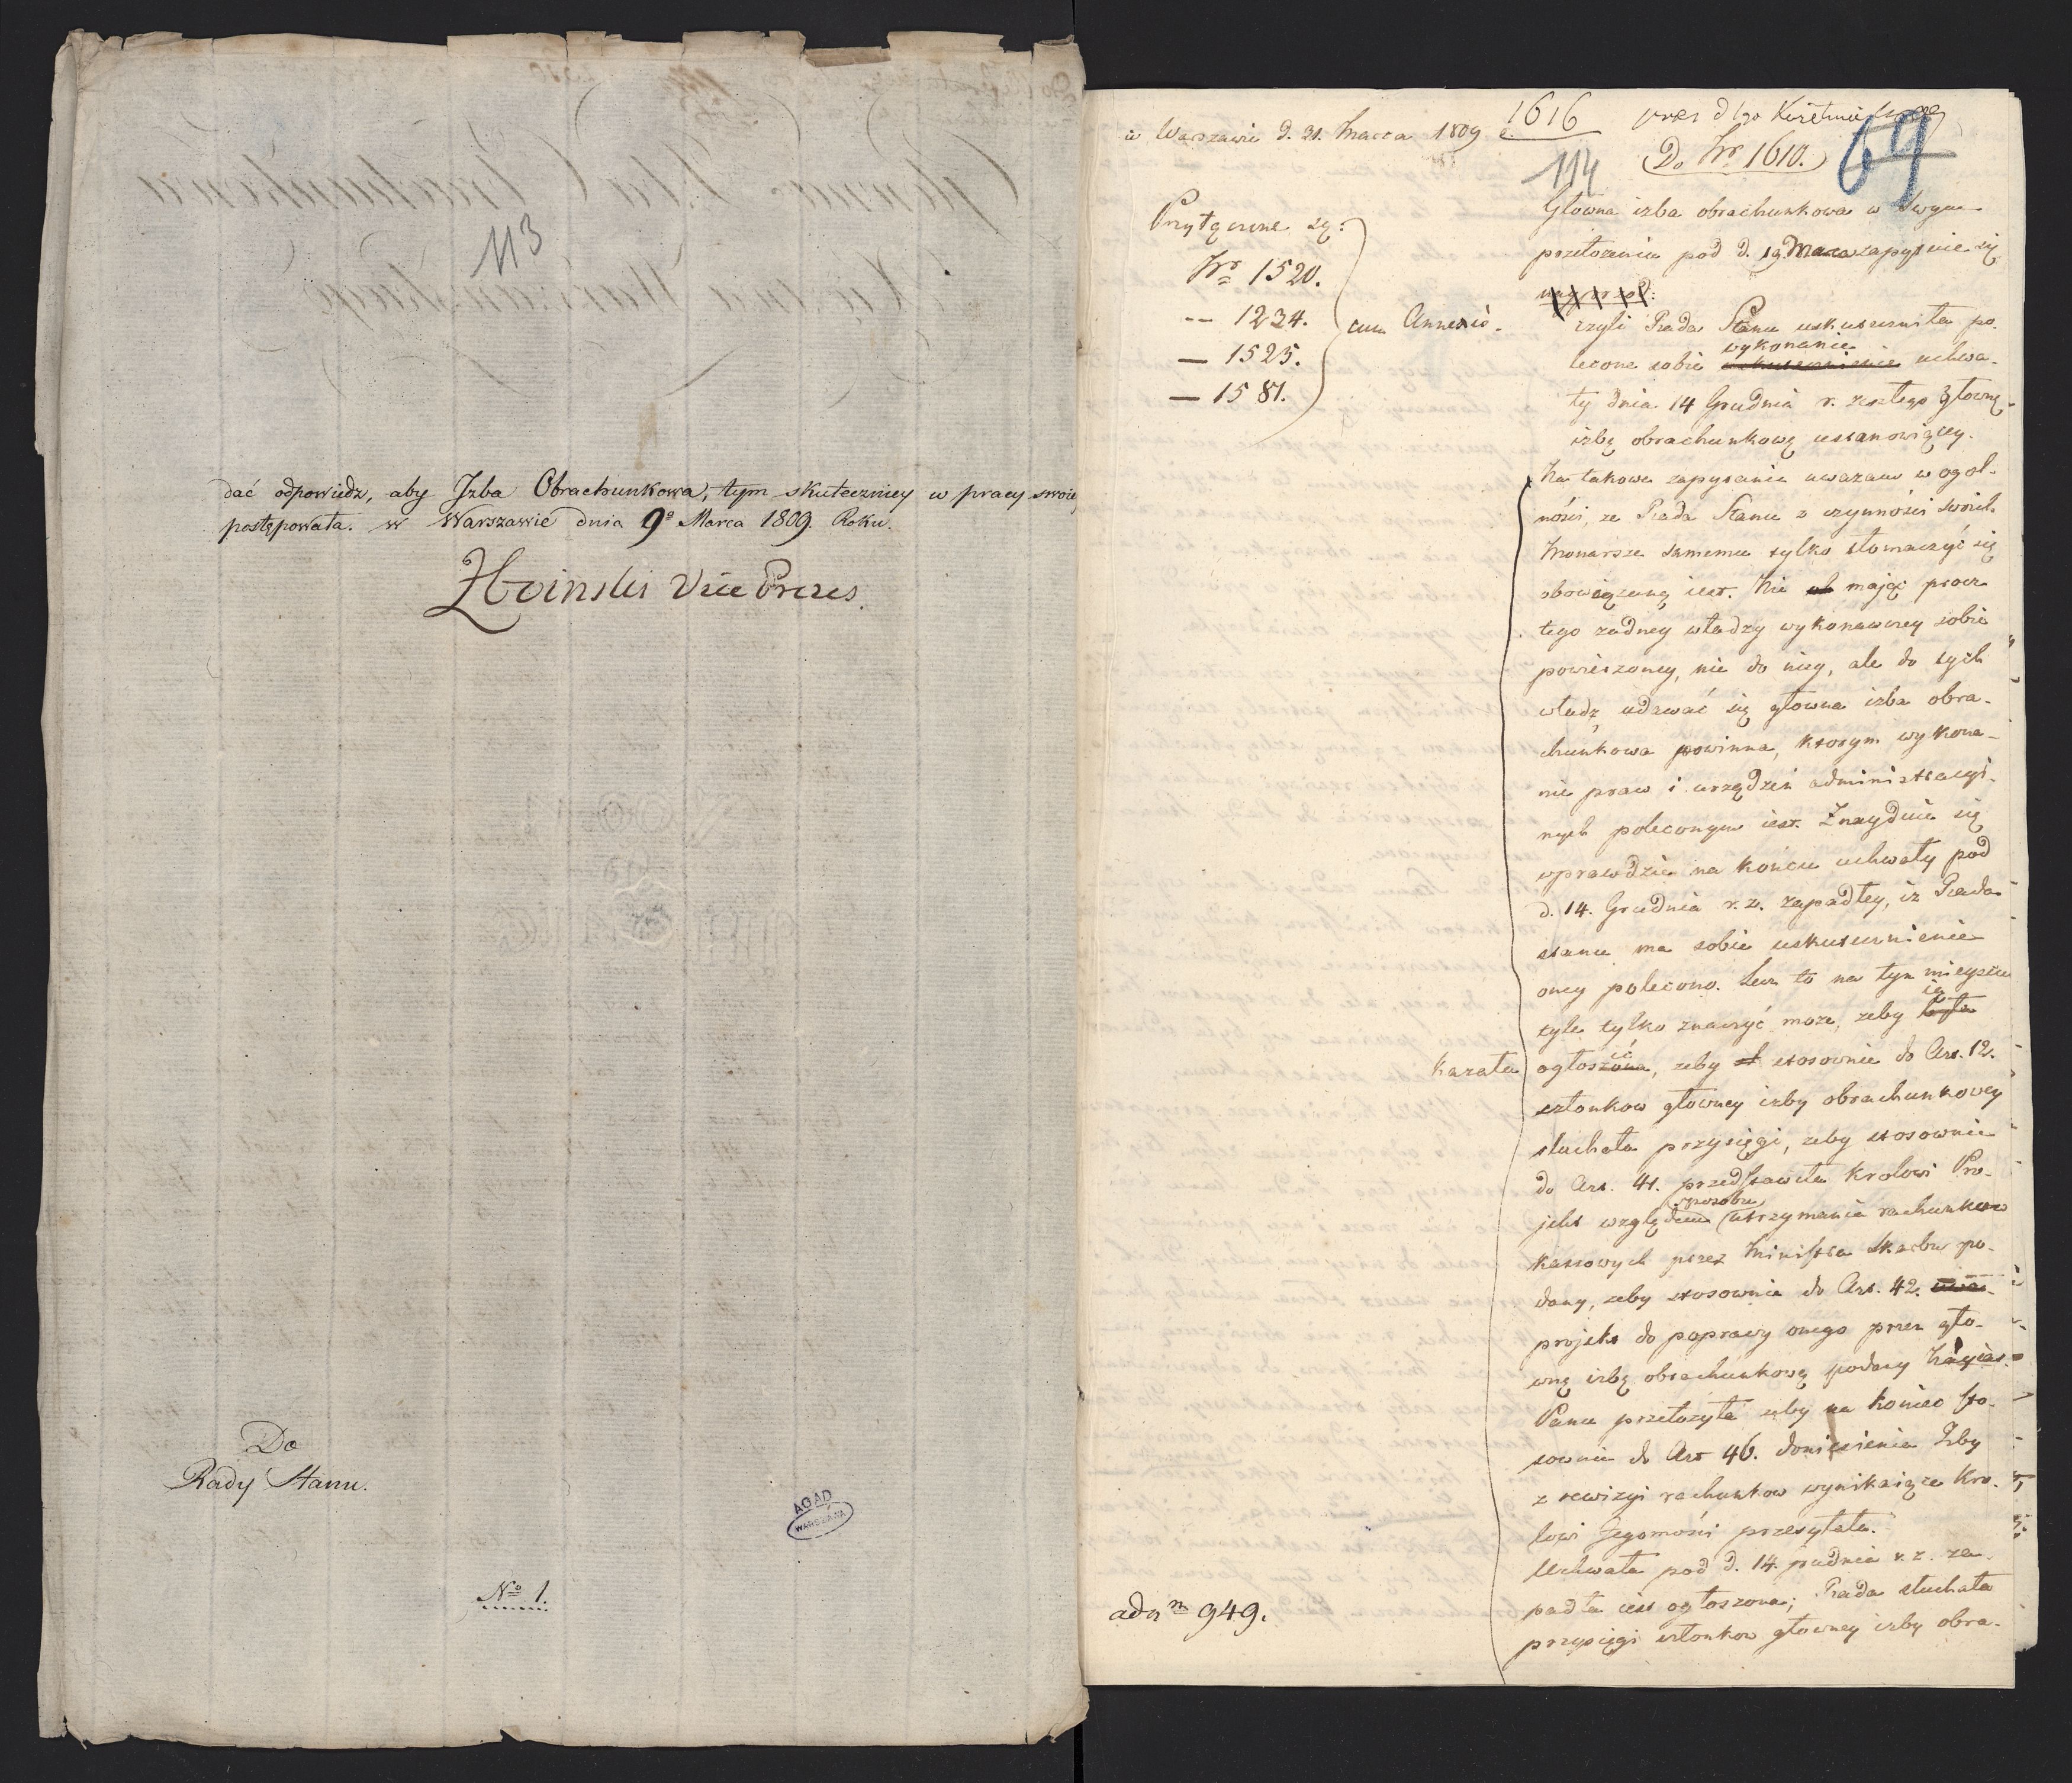 113
dać odpowiedz, aby Jzba Obrachunkowa, tym skuteczniey w pracy swoiey
postępowała. w Warszawie dnia 9º Marca 1809. Roku.
Vice Prezes.
Do
Rady Stanu.
AGAD
WARSZAWA
Nº 1.
w Warszawie d. 21. Marca 1809
1616
114
Do Nr 1610.
69
Przyłączone są:
Nr 1520.
-- 1234.
— 1525.
— 1581.
cum Annexis.
Głowna izba obrachunkowa w swym
przełozeniu pod d. 19. Marca zapytuie się
czyli Rada Stanu uskuteczniła po-
lecone sobie wykonanie uchwa-
ły dnia 14 Grudnia r. zeszłego głowną
izbę obrachunkową ustanowiącey.
Na takowe zapytanie uwazam w ogol-
ności, ze Rada Stanu z czynności swoich
Monarsze samemu tylko tłomaczyć się
obowiązaną iest. Nie mając procz
tego zadney władzy wykonawczey sobie
powierzoney, nie do niey, ale do tych
władz udawać się głowna izba obra-
chunkowa powinna, ktorym wykona-
nie praw i urządzeń administracyi-
nych poleconym iest. Znayduie się
wprawdzie na końcu uchwały pod
d. 14. Grudnia r. z. zapadłey, iz Rada
stanu ma sobie uskutecznienie
oney polecono. Lecz to na tym mieyscu
tyle tylko znaczyć moze, zeby ią
kazała
ogłosić, zeby stosownie do Art. 12.
członkow głowney izby obrachunkowey
słuchała przysięgi, zeby stosownie
do Art. 41. przedstawiła Krolowi Pro-
jekt względem sposobu utrzymania rachunkow
kassowych przez Ministra Skarbu po-
dany, zeby stosownie do Art. 42.
projekt do poprawy onego przez gło-
wną izbę obrachunkową podany Nayias.
Panu przełozyła zeby na koniec sto-
sownie do Art 46. doniesienia Izby
z rewizyi rachunkow wynikaiące Kro-
lowi Jegomości przesyłała.
Uchwała pod d. 14. grudnia r. z. za-
padła iest ogłoszona; Rada słuchała
przysięgi członkow głowney izby obra-
949.